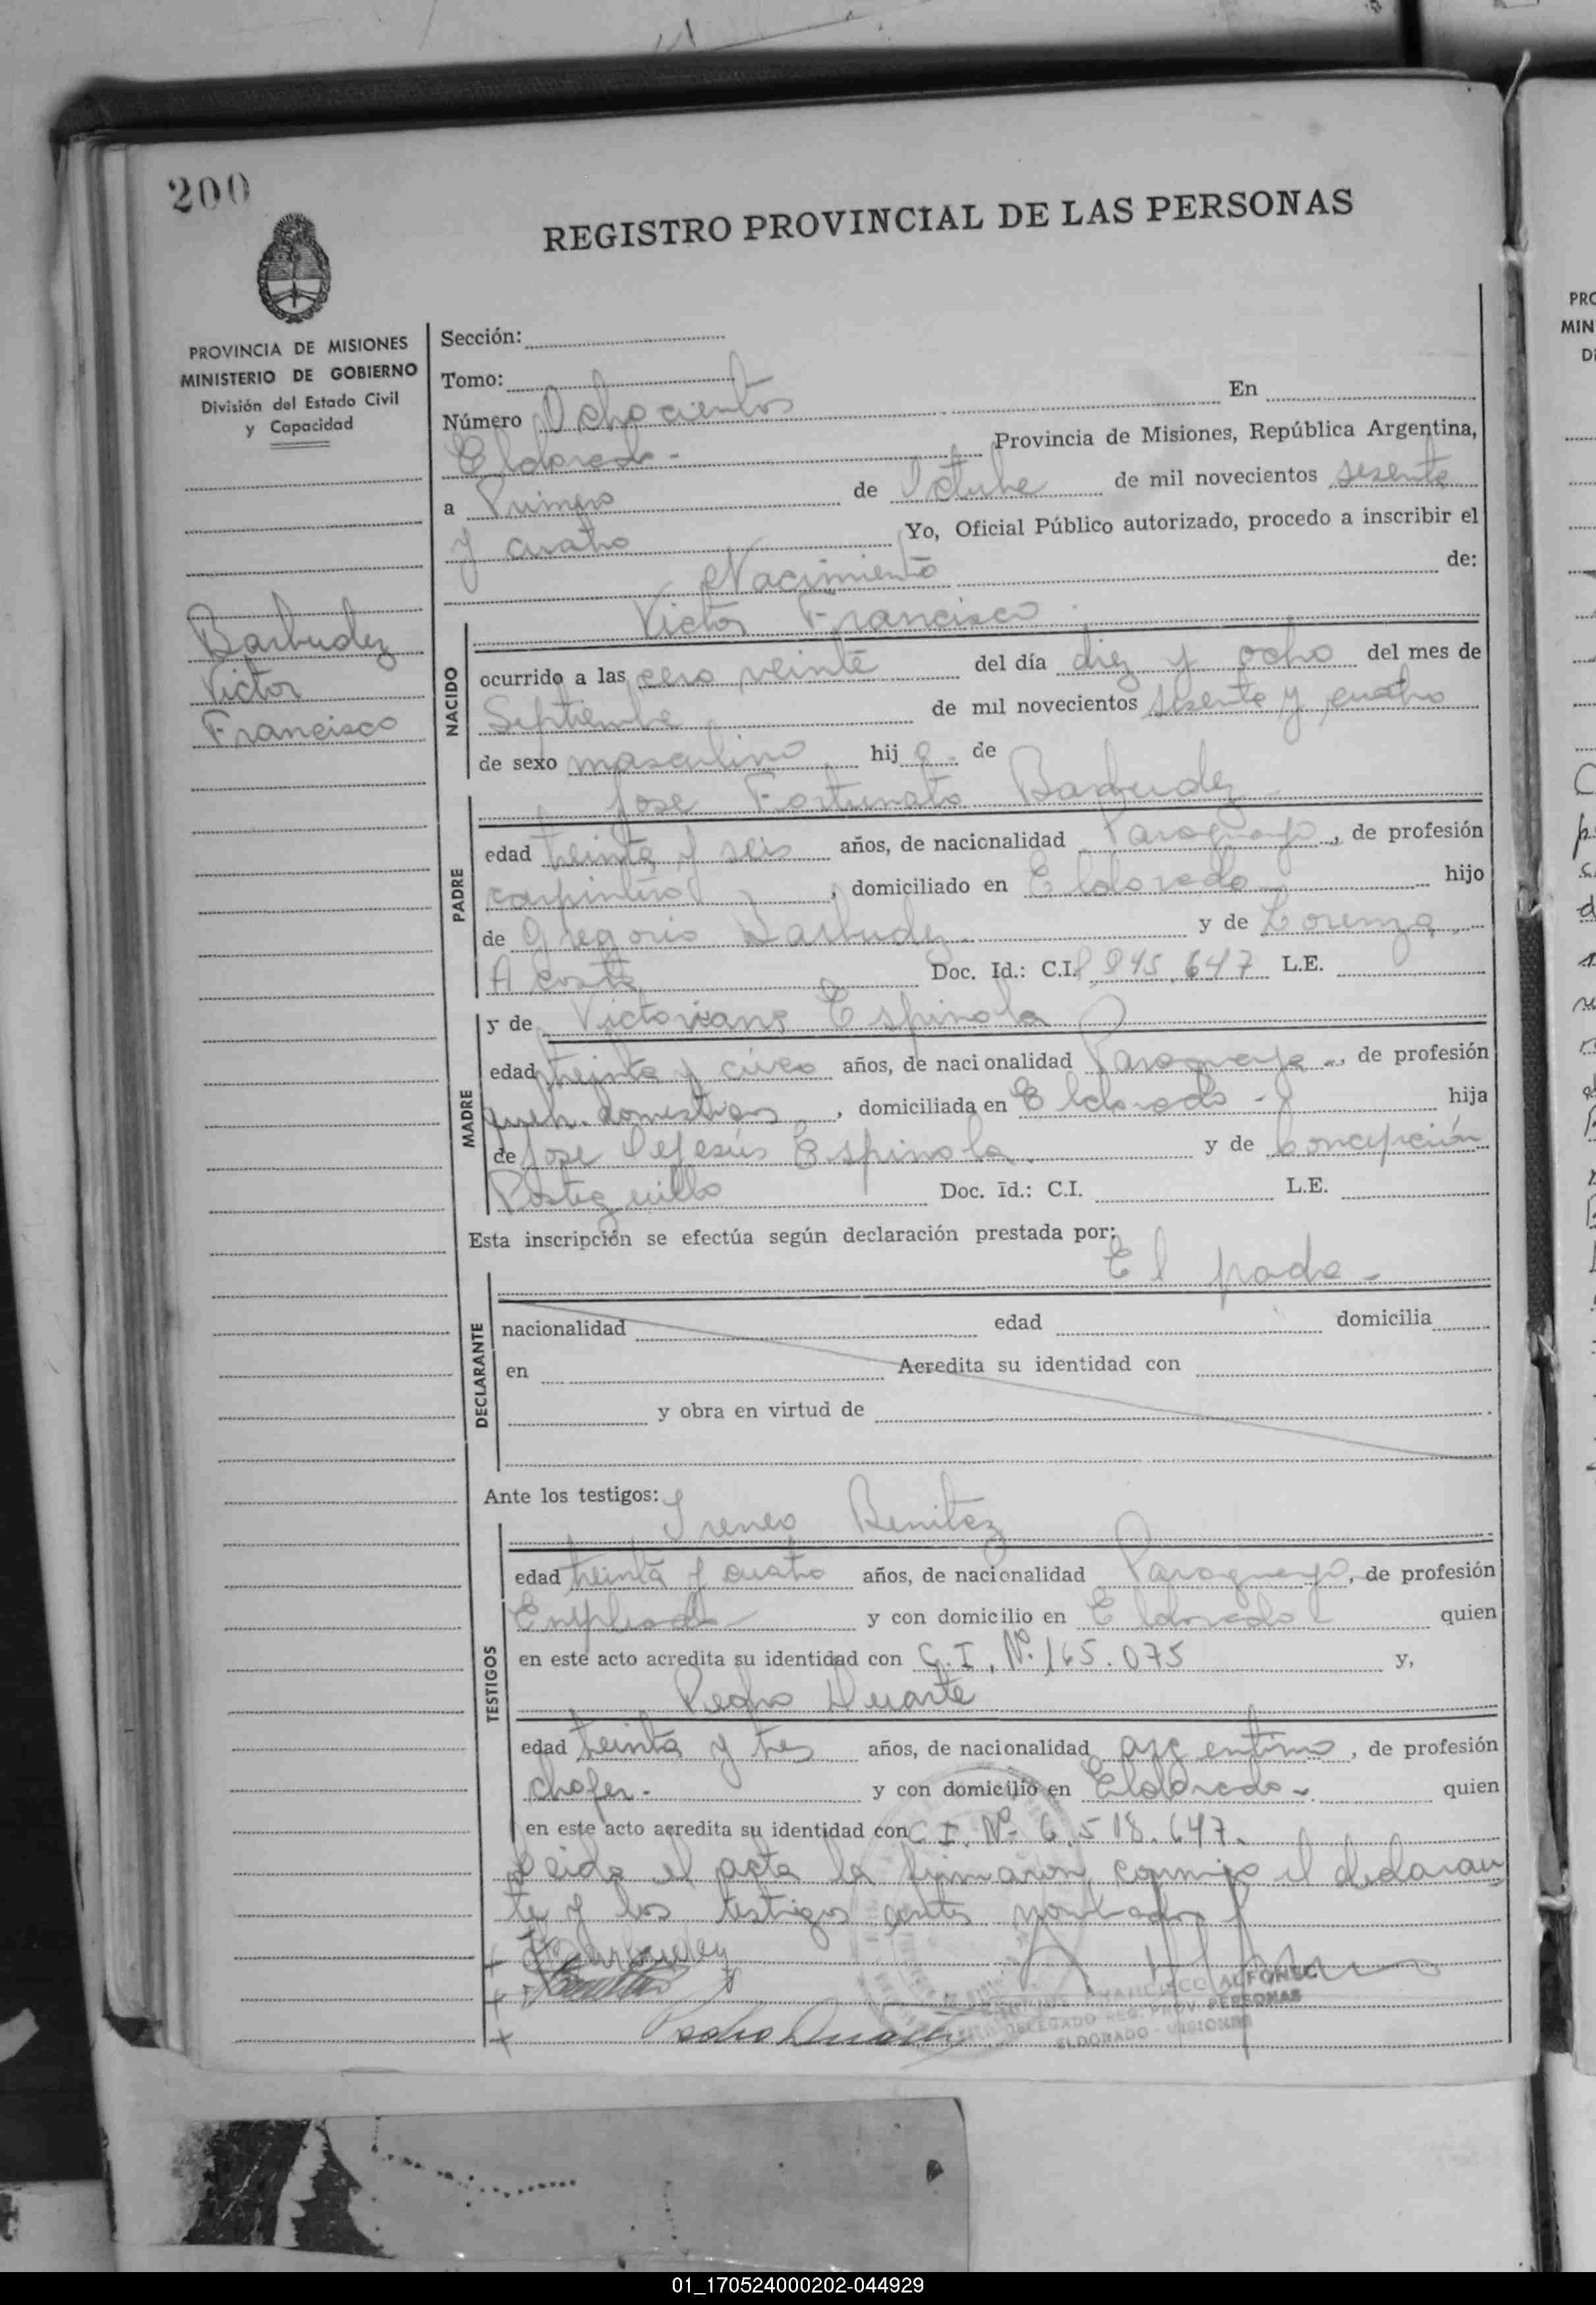 200
REGISTRO PROVINCIAL DE LAS PERSONAS
PROVINCIA DE MISIONES
MINISTERIO DE GOBIERNO
División del Estado Civil
y Capacidad
Barbudez
Victor
Francisco
Sección:
Tomo:
Número Ochocientos En
Eldorado - Provincia de Misiones, República Argentina,
a Primero de Octubre de mil novecientos sesenta
y cuatro Yo, Oficial Público autorizado, procedo a inscribir el
Nacimiento de:
NACIDO
Victor Francisco
ocurrido a las cero veinte del día diez y ocho del mes de
Septiembre de mil novecientos sesenta y cuatro
de sexo masculino hijo - de
PADRE
Jose Fortunato Barbudez
edad treinta y seis años, de nacionalidad Paraguayo, de profesión
carpintero, domiciliado en Eldorado - hijo
de Gregorio Barbudez y de Lorenza
Acosta Doc. Id.: C.I. 845.647 L.E.
MADRE
y de Victoriana Espinola
edad treinta y cinco años, de nacionalidad Paraguaya -, de profesión
queh. domesticos, domiciliada en Eldorado - hija
de Jose Dejesús Espinola y de Concepción
Postiguillo Doc. Id.: C.I. L.E.
Esta inscripción se efectúa según declaración prestada por:
El padre -
DECLARANTE
nacionalidad edad domicilia
en Acredita su identidad con
y obra en virtud de
Ante los testigos:
Ireneo Benitez
TESTIGOS
edad treinta y cuatro años, de nacionalidad Paraguayo, de profesión
Empleado y con domicilio en Eldorado quien
en este acto acredita su identidad con C.I. Nº. 165.075 y,
Pedro Duarte
edad treinta y tres años, de nacionalidad argentino, de profesión
chofer. y con domicilio en Eldorado - quien
en este acto acredita su identidad con C.I. Nº 6.518.647.
Leida el acta la firmaron conmigo el declaran
te y los testigos antes nombrados
Barbudez
Pedro Duarte
FRANCISCO ALFONSO
DELEGADO REG. PROV. PERSONAS
ELDORADO - MISIONES
PRO
MIN
01_170524000202-044929